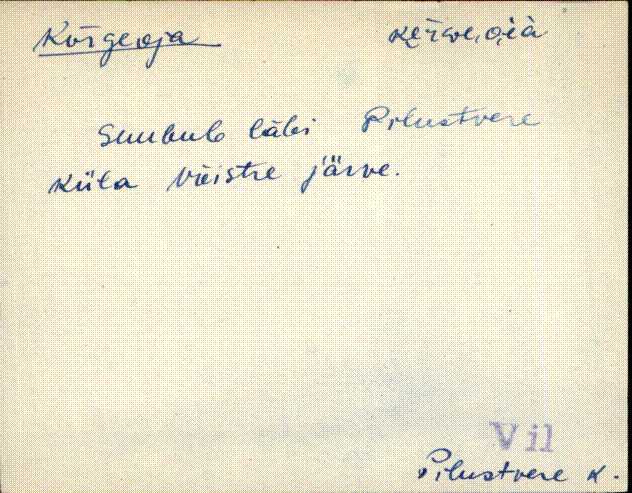 Kõrgeoja
Suubub läbi Pilustvere
küla Võistre järve.
Vil
Pilustvere k.